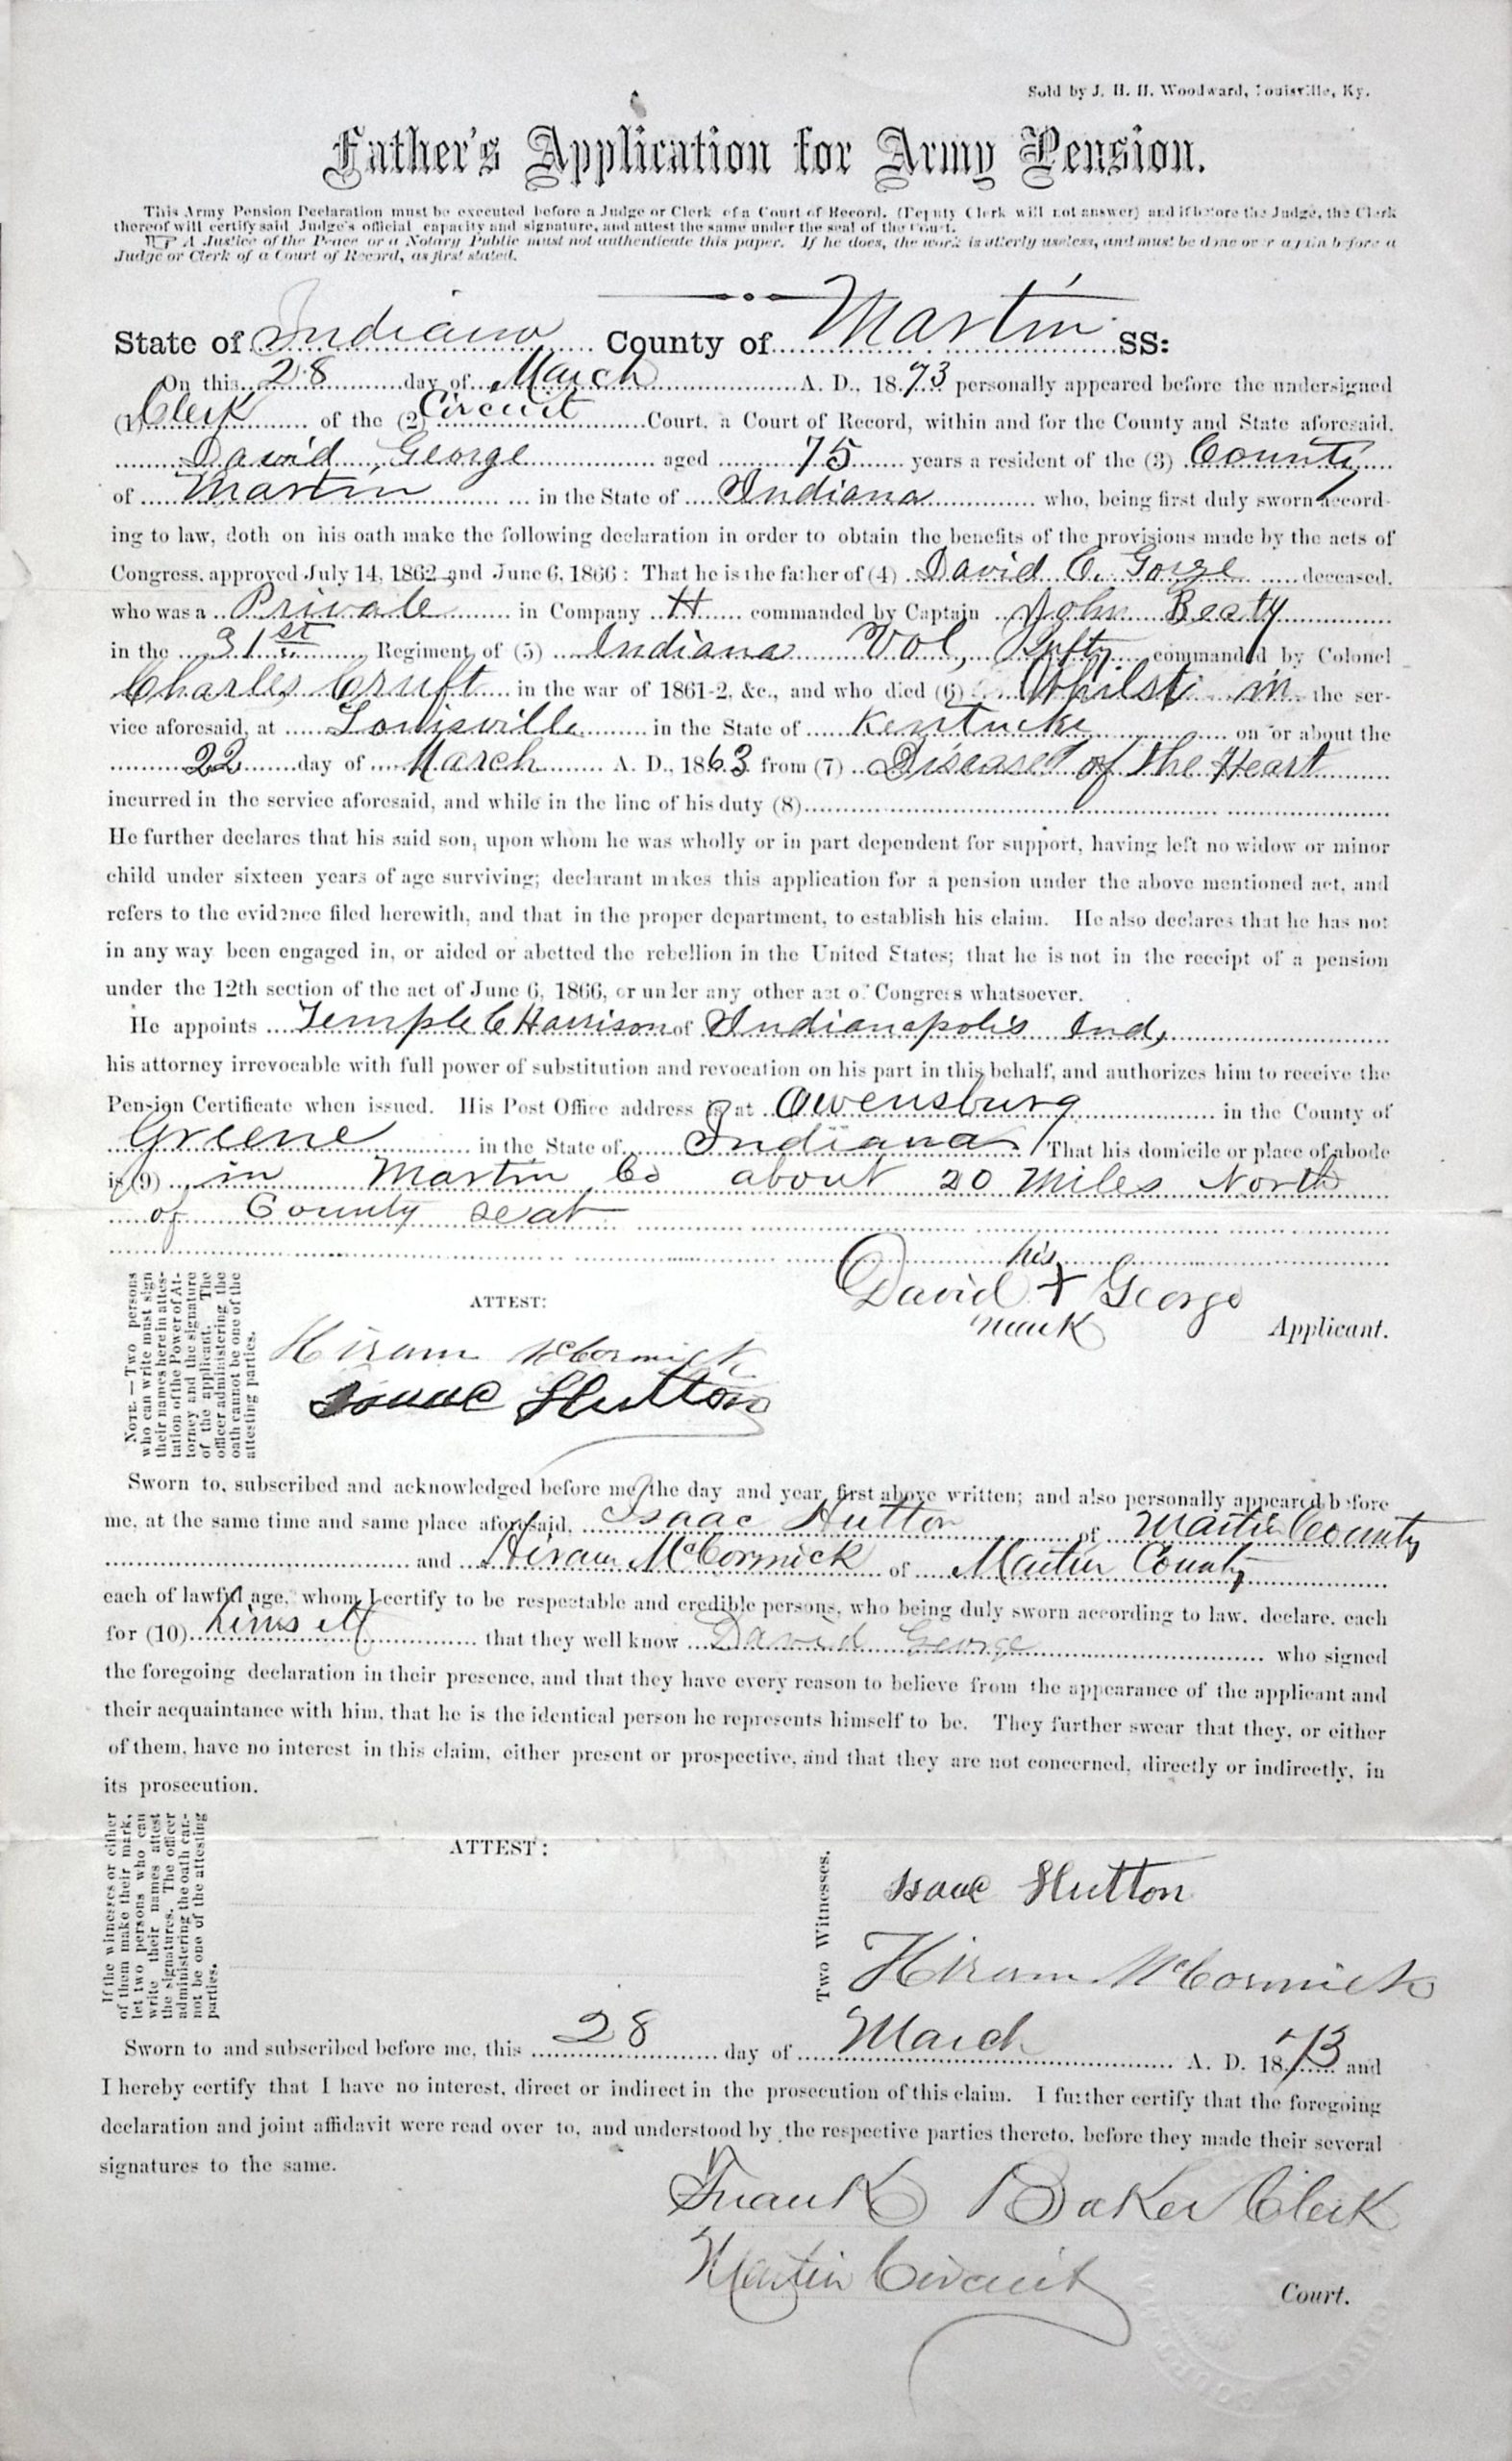 Sold by J. H. H. Woodward, Louisville, Ky.
Father's Application for Army Pension.
This Army Pension Declaration must be executed before a Judge or Clerk of a Court of Record. (Deputy Clerk will not answer) and if before the Judge, the Clerk
thereof will certify said Judge's official capacity and signature, and attest the same under the seal of the Court.
☞ A Justice of the Peace or a Notary Public must not authenticate this paper. If he does, the work is utterly useless, and must be done over again before a
Judge or Clerk of a Court of Record, as first stated.
State of Indiana County of Martin SS:
On this 28 day of March A. D., 1873 personally appeared before the undersigned
(1) Clerk of the (2) Circuit Court, a Court of Record, within and for the County and State aforesaid,
David George aged 75 years a resident of the (3) County
of Martin in the State of Indiana who, being first duly sworn accord-
ing to law, doth on his oath make the following declaration in order to obtain the benefits of the provisions made by the acts of
Congress, approved July 14, 1862, and June 6, 1866: That he is the father of (4) David C. Gorge deceased,
who was a Private in Company H commanded by Captain John Beaty
in the 31st Regiment of (5) Indiana Vol, Infty commanded by Colonel
Charles Cruft in the war of 1861-2, &c., and who died (6) Whilst in the ser-
vice aforesaid, at Louisville in the State of Kentucky on or about the
22 day of March A. D., 1863 from (7) Disease of the Heart
incurred in the service aforesaid, and while in the line of his duty (8)
He further declares that his said son, upon whom he was wholly or in part dependent for support, having left no widow or minor
child under sixteen years of age surviving; declarant makes this application for a pension under the above mentioned act, and
refers to the evidence filed herewith, and that in the proper department, to establish his claim. He also declares that he has not
in any way been engaged in, or aided or abetted the rebellion in the United States; that he is not in the receipt of a pension
under the 12th section of the act of June 6, 1866, or under any other act of Congress whatsoever.
He appoints Temple C Harrison of Indianapolis Ind,
his attorney irrevocable with full power of substitution and revocation on his part in this behalf, and authorizes him to receive the
Pension Certificate when issued. His Post Office address is at Owensburg in the County of
Greene in the State of Indiana That his domicile or place of abode
is (9) in Martin Co about 20 Miles North
of County seat
his
David + George
mark Applicant.
NOTE.—Two persons
who can write must sign
their names here in attes-
tation of the Power of At-
torney and the signature
of the applicant. The
officer administering the
oath cannot be one of the
attesting parties.
ATTEST:
Hiram McCormick
Isaac Hutton
Sworn to, subscribed and acknowledged before me the day and year first above written; and also personally appeared before
me, at the same time and same place aforesaid, Isaac Hutton of Martin County
and Hiram McCormick of Martin County
each of lawful age, whom I certify to be respectable and credible persons, who being duly sworn according to law, declare, each
for (10) himself that they well know David George who signed
the foregoing declaration in their presence, and that they have every reason to believe from the appearance of the applicant and
their acquaintance with him, that he is the identical person he represents himself to be. They further swear that they, or either
of them, have no interest in this claim, either present or prospective, and that they are not concerned, directly or indirectly, in
its prosecution.
If the witnesses or either
of them make their mark,
let two persons who can
write their names attest
the signatures. The officer
administering the oath can-
not be one of the attesting
parties.
ATTEST:
Two Witnesses.
Isaac Hutton
Hiram McCormick
Sworn to and subscribed before me, this 28 day of March A. D. 1873 and
I hereby certify that I have no interest, direct or indirect in the prosecution of this claim. I further certify that the foregoing
declaration and joint affidavit were read over to, and understood by the respective parties thereto, before they made their several
signatures to the same.
Frank Baker Clerk
Martin Circuit Court.